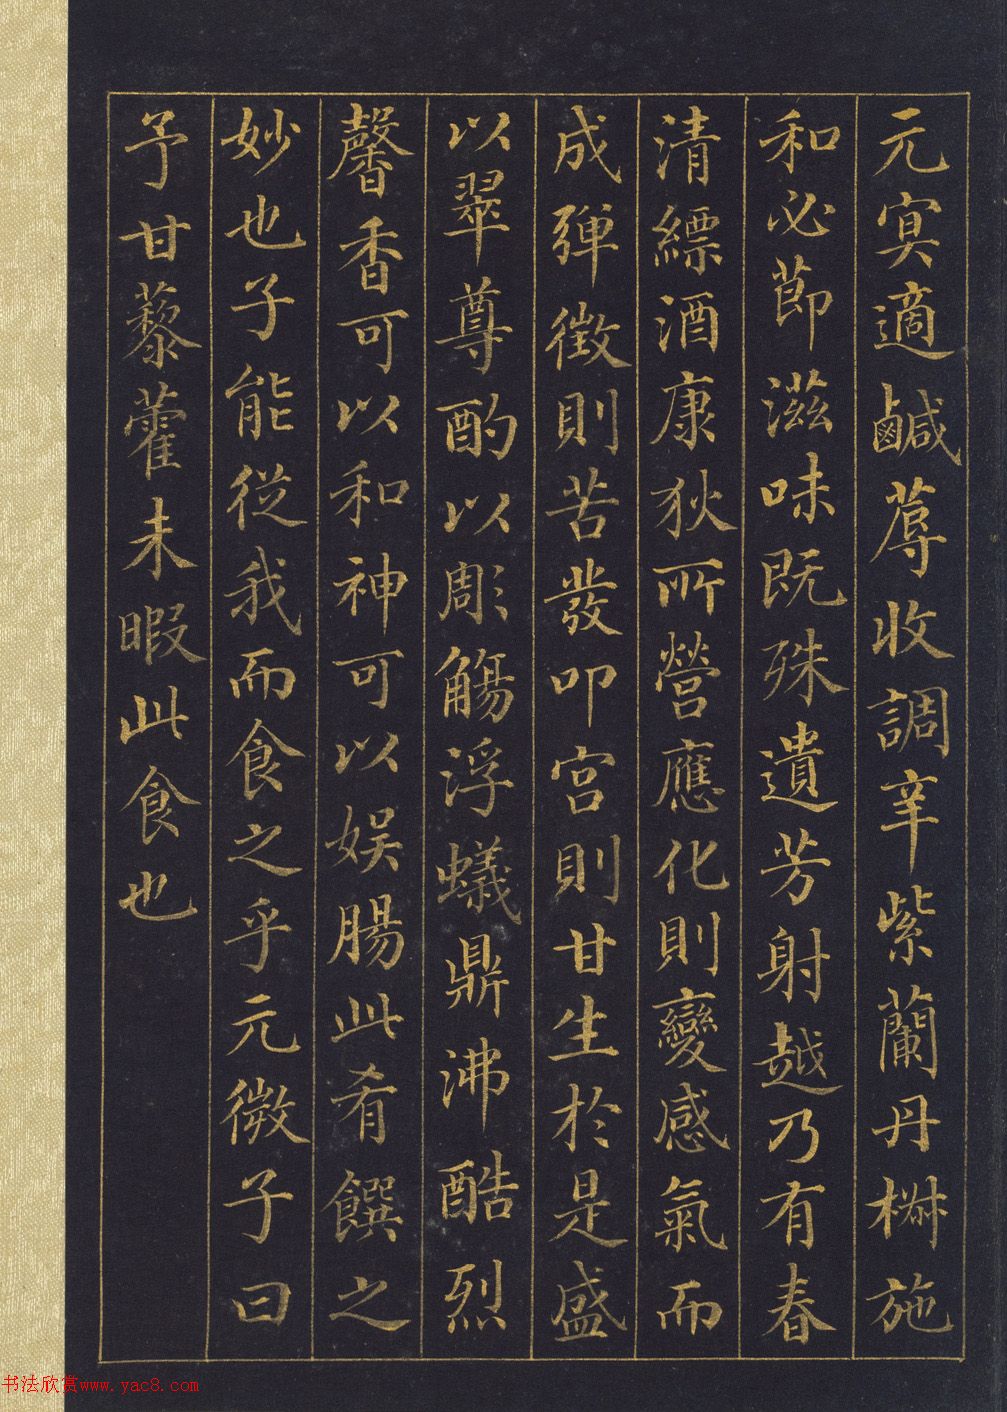 元冥適鹹蓐收調辛紫蘭丹椒施
和必節滋味既殊遺芳射越乃有春
清縹酒康狄所營應化則變感氣而
成弹徵則苦發叩宮則甘生於是盛
以翠尊酌以彫觴浮蟻鼎沸酷烈
馨香可以和神可以娱腸此肴饌之
妙也子能從我而食之乎元微子曰
予甘藜藿未暇此食也
书法欣赏www.yac8.com